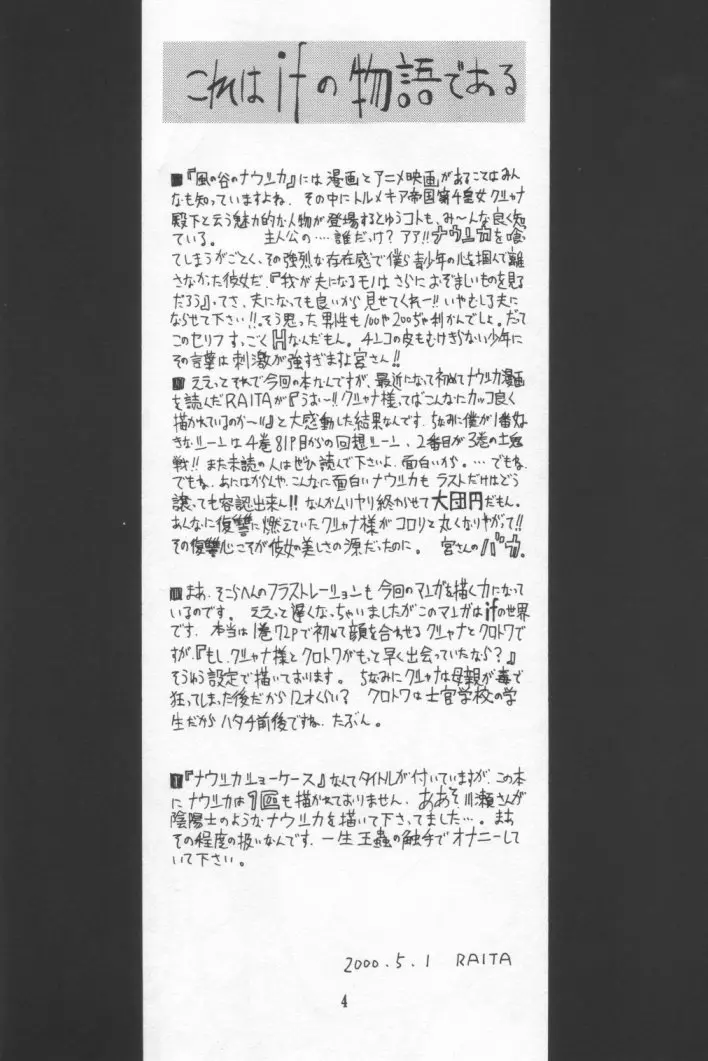 これは ifの物語である
■『風の谷のナウシカ』には漫画とアニメ映画があることはみん
なも知っていますよね。その中にトルメキア帝国第4皇女クシャナ
殿下と云う魅力的な人物が登場するとゆうコトも、み〜んな良く知
ている。 主人公の‥‥誰だっけ?アア!!ナウシカを喰っ
てしまうがごとく、その強烈な存在感で僕ら青少年の心を掴んで離
さなかった彼女だ。『我が夫になるモノはさらにおぞましいものを見る
だろう』ってさ、夫になっても良いから見せてくれー!!いやむしろ夫に
ならせて下さい!!。そう思った男性も100や200ぢゃ利かんでしょ。だって
このセリフすっごくHなんだもん。チ○コの皮もむけきらない少年に
その言葉は刺激が強すぎますよ宮さん!!
■ええっとそれで今回の本なんですが、最近になって初めてナウシカ漫画
を読んだRAITAが『うお〜!!クシャナ様ってばこんなにカッコ良く
描かれているのか〜!!』と大感動した結果なんです。ちなみに僕が1番好
きなシーンは4巻81P目からの回想シーン、2番目が3巻の土鬼
戦!!また未読の人はぜひ読んで下さいよ、面白いから。…でもね、
でもね、おにはがんや、こんなに面白いナウシカも ラストだけはどう
譲っても容認出来ん!!なんかムリヤリ終わらせて大団円だもん。
あんなに復讐に燃えていたクシャナ様がコロリと丸くなりやがって!!
その復讐心こそが彼女の美しさの源だったのに。 宮さんのバカ。
■まあ、そこらへんのフラストレーションも今回のマンガを描く力になって
いるのです。ええっと遅くなっちゃいましたがこのマンガはifの世界
です、本当は1巻72Pで初めて顔を合わせるクシャナとクロトワで
すが、『もし、クシャナ様とクロトワがもっと早く出会っていたなら?』
そうゆう設定で描いております。ちなみにクシャナは母親が毒で
狂ってしまった後だから12才くらい? クロトワは士官学校の学
生だからハタチ前後ですね、たぶん。
■『ナウシカショーケース』なんてタイトルが付いていますが、この本
にナウシカは1回も描かれておりません、ああそっ川瀬さんが
陰陽士のようなナウシカを描いて下さってました…。まあ
その程度の扱いなんです、一生王蟲の触手でオナニーして
いて下さい。
2000.5.1 RAITA
4